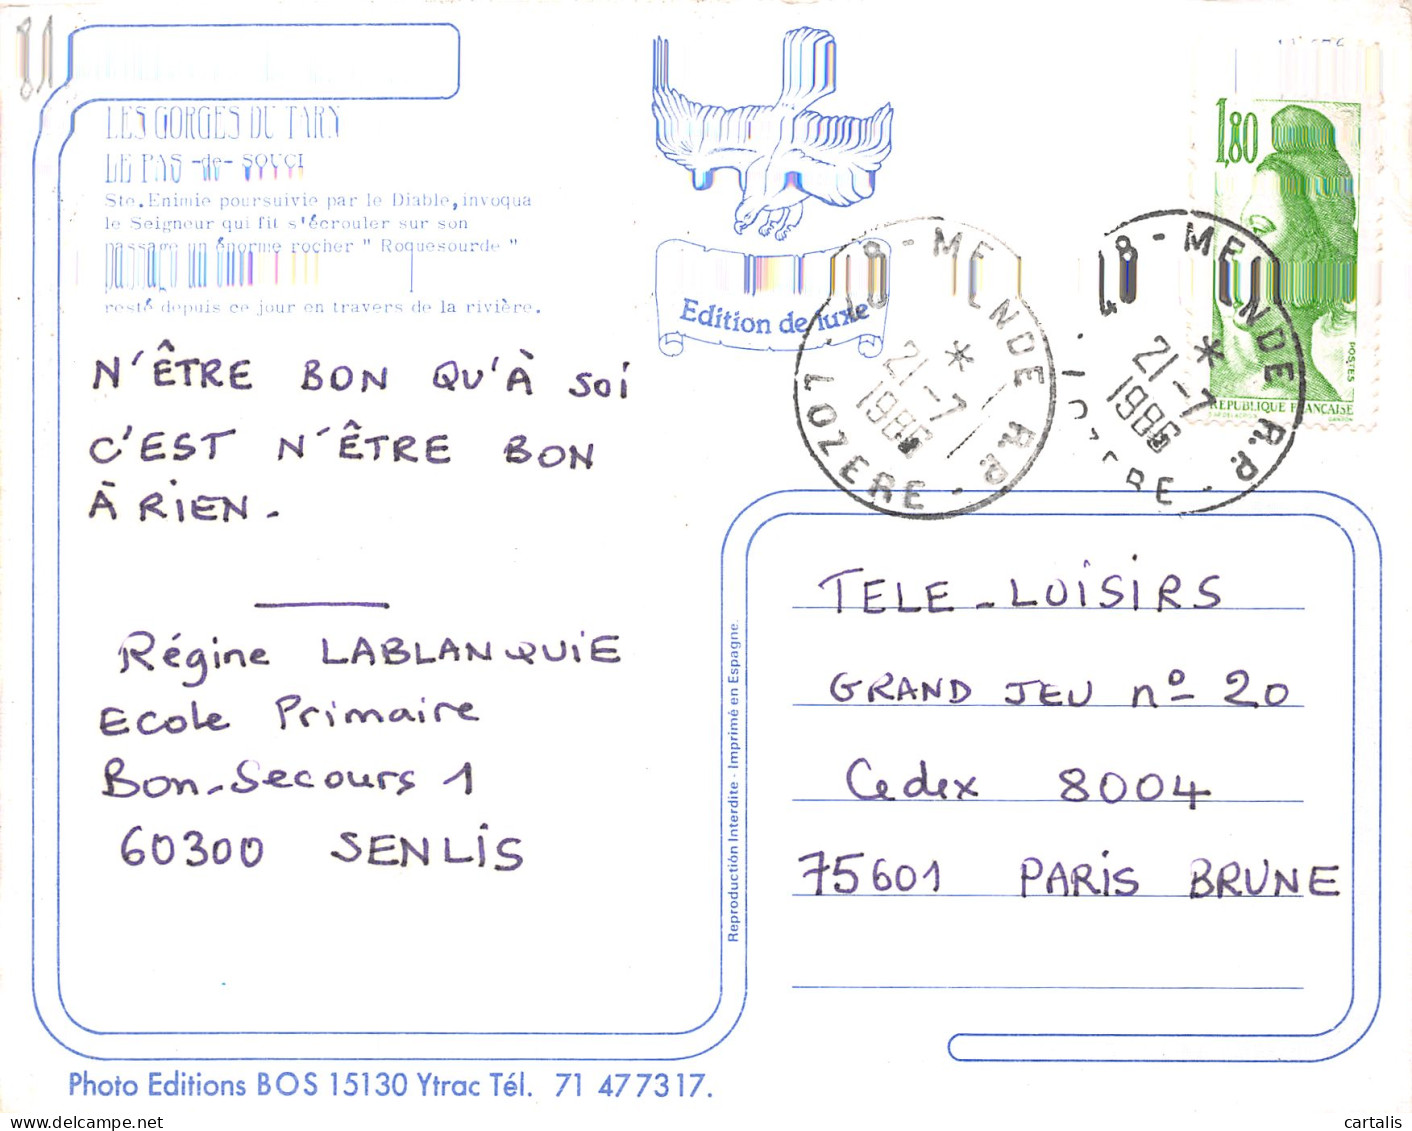 81
LES GORGES DU TARN
LE PAS -de- SOUCI
Ste.Enimie poursuivie par le Diable, invoqua
le Seigneur qui fit s'écrouler sur son
passage un énorme rocher " Roquesourde "
resté depuis ce jour en travers de la rivière.
Edition de luxe
1,80
POSTES
REPUBLIQUE FRANÇAISE
48 - MENDE R.P. - LOZERE
21-7
1986
48 - MENDE R.P. - LOZERE
21-7
1986
N'ÊTRE BON QU'À SOI
C'EST N'ÊTRE BON
À RIEN.
Régine LABLANQUIE
Ecole Primaire
Bon-Secours 1
60300 SENLIS
Reproduction Interdite - Imprimé en Espagne.
TELE-LOISIRS
GRAND JEU nº 20
Cedex 8004
75601 PARIS BRUNE
Photo Editions BOS 15130 Ytrac Tél. 71 477317.
cartalis